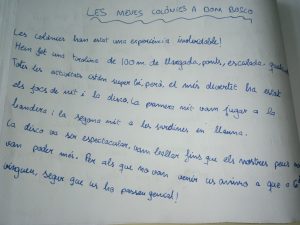 LES MEVES COLÒNIES A DOM BOSCO
Les colònies han estat una experiència inoblidable!
Hem fet una tirolina de 100 m de llargada, ponts, escalada
Totes les activitats estàn super bé, però, el més divertit ha estat
els jocs de nit i la disco. La primera nit vam jugar a la
bandera i la segona nit a les sardines en llauna.
La disco va ser espectacular, vam ballar fins que els nostres peus no
van poder més. Per als que no van venir us animo a que
vingueu, segur que us ho passeu genial!